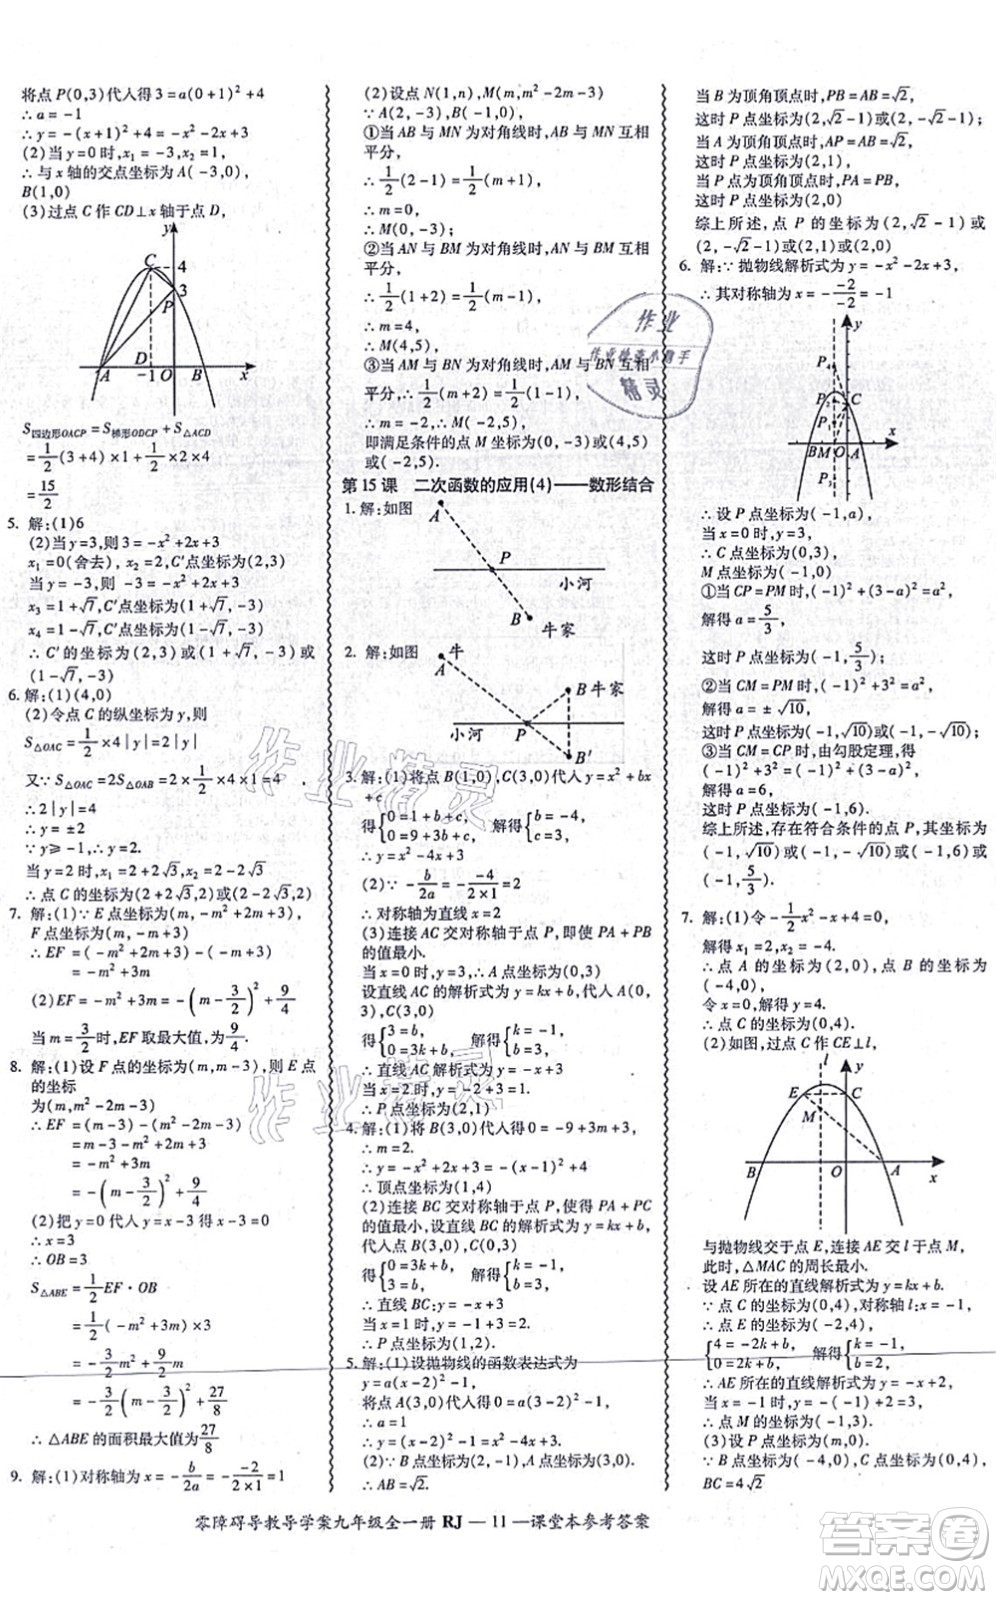 将点 P(0,3)代人得 3=a(0+1)²+4
∴a=-1
∴y=-(x+1)²+4=-x²-2x+3
(2)当 y=0 时,x₁=-3,x₂=1,
∴与 x 轴的交点坐标为 A(-3,0),
B(1,0)
(3)过点 C 作 CD⊥x 轴于点 D,
y
C
4
3
P
D
A
-1
B
x
S四边形OACP=S梯形ODCP+S△ACD
=1/2(3+4)×1+1/2×2×4
=15/2
5. 解:(1)6
(2)当 y=3,则 3=-x²+2x+3
x₁=0(舍去),x₂=2,C′点坐标为(2,3)
当 y=-3,则 -3=-x²+2x+3
x₃=1+√7,C′点坐标为(1+√7,-3)
x₄=1-√7,C′点坐标为(1-√7,-3)
∴C′的坐标为(2,3)或(1+√7,-3)或
(1-√7,-3)
6. 解:(1)(4,0)
(2)令点 C 的纵坐标为 y,则
S△OAC=1/2×4|y|=2|y|
又∵S△OAC=2S△OAB=2×1/2×4×1=4
∴2|y|=4
∴y=±2
∵y≥-1,∴y=2.
当 y=2 时,x₁=2+2√3,x₂=2-2√3
∴点 C 的坐标为(2+2√3,2)或(2-2√3,2)
7. 解:(1)∵E 点坐标为(m,-m²+2m+3),
F 点坐标为(m,-m+3)
∴EF=(-m²+2m+3)-(-m+3)
=-m²+3m
(2)EF=-m²+3m=-(m-3/2)²+9/4
当 m=3/2时,EF 取最大值,为9/4.
8. 解:(1)设 F 点的坐标为(m,m-3),则 E 点
的坐标
为(m,m²-2m-3)
∴EF=(m-3)-(m²-2m-3)
=m-3-m²+2m+3
=-m²+3m
=-(m-3/2)²+9/4
(2)把 y=0 代人 y=x-3 得 x-3=0
∴x=3
∴OB=3
S△ABE=1/2EF·OB
=1/2(-m²+3m)×3
=-3/2m²+9/2m
=-3/2(m-3/2)²+27/8
∴△ABE 的面积最大值为27/8
9. 解:(1)对称轴为 x=-b/2a=-(-2)/(2×1)=1
(2)设点 N(1,n),M(m,m²-2m-3)
∵A(2,-3),B(-1,0)
①当 AB 与 MN 为对角线时,AB 与 MN 互相
平分,
∴1/2(2-1)=1/2(m+1),
∴m=0,
∴M(0,-3);
②当 AN 与 BM 为对角线时,AN 与 BM 互相
平分,
∴1/2(1+2)=1/2(m-1),
∴m=4,
∴M(4,5),
③当 AM 与 BN 为对角线时,AM 与 BN 互相
平分,∴1/2(m+2)=1/2(1-1),
∴m=-2,∴M(-2,5),
即满足条件的点 M 坐标为(0,-3)或(4,5)
或(-2,5).
第 15 课 二次函数的应用(4)——数形结合
1. 解:如图
A
P
小河
B
牛家
2. 解:如图
牛
A
B 牛家
小河
P
B′
3. 解:(1)将点 B(1,0),C(3,0)代人 y=x²+bx
+c
得{0=1+b+c 解得{b=-4,
{0=9+3b+c, {c=3,
∴y=x²-4x+3
(2)∵-b/2a=-(-4)/(2×1)=2
∴对称轴为直线 x=2
(3)连接 AC 交对称轴于点 P,即使 PA+PB
的值最小.
当 x=0 时,y=3,∴A(0,3)
设直线 AC 的解析式为 y=kx+b,代人 A(0,
3),C(3,0)
得{3=b, 解得{k=-1,
{0=3k+b {b=3,
∴直线 AC:y=-x+3
当 x=2 时,y=1,
∴P 点坐标为(2,1)
4. 解:(1)将 B(3,0)代人得 0=-9+3m+3,
∴m=2.
∴y=-x²+2x+3=-(x-1)²+4
∴顶点坐标为(1,4)
(2)连接 BC 交对称轴于 P,使得 PA+PC
的值最小,设直线 BC 的解析式为 y=kx+b,
代人点 B(3,0),C(0,3)
得{0=3k+b 解得{k=-1
{3=0k+b, {b=3
∴直线 BC:y=-x+3
当 x=1 时,y=2,
∴P 点坐标为(1,2).
5. 解:(1)设抛物线的函数表达式为
y=a(x-2)²-1
将点 A(3,0)代人,得 0=a(3-2)²-1
∴a=1
∴y=(x-2)²-1=x²-4x+3
(2)∵A(3,0),B(2,-1),∴AB=√2
当 B 为顶角顶点时,PB=AB=√2,
这时 P 点坐标为(2,√2-1)或(2,-√2-1);
当 A 为顶角顶点时,PA=AB=√2,
这时 P 点坐标为(2,1),
当 P 点为顶角顶点时,PA=PB,
这时 P 点坐标为(2,0)
综上所述,点 P 的坐标为(2,√2-1)或
(2,-√2-1)或(2,1)或(2,0)
6. 解:∵抛物线解析式为 y=-x²-2x+3,
∴其对称轴为 x=-(-2)/(-2)=-1
y
P₄
P₂
C
P₁
x
B M O A
P₃
∴设 P 点坐标为(-1,a),
当 x=0 时,y=3,
∴C 点坐标为(0,3),
M 点坐标为(-1,0)
①当 CP=PM 时,(-1)²+(3-a)²=a²,
解得 a=5/3,
这时 P 点坐标为(-1,5/3);
②当 CM=PM 时,(-1)²+3²=a²,
解得 a=±√10,
这时 P 点坐标为(-1,√10)或(-1,-√10);
③当 CM=CP 时,由勾股定理,得
(-1)²+3²=(-1)²+(3-a)²,
解得 a=6,
这时 P 点坐标为(-1,6).
综上所述,存在符合条件的点 P,其坐标为
(-1,√10)或(-1,-√10)或(-1,6)或
(-1,5/3)
7. 解:(1)令-1/2x²-x+4=0,
解得 x₁=2,x₂=-4.
∴点 A 的坐标为(2,0),点 B 的坐标为
(-4,0),
令 x=0,解得 y=4.
∴点 C 的坐标为(0,4).
(2)如图,过点 C 作 CE⊥l,
y
E
C
M
B
O
A
x
与抛物线交于点 E,连接 AE 交 l 于点 M,
此时,△MAC 的周长最小.
设 AE 所在的直线解析式为 y=kx+b.
∵点 C 的坐标为(0,4),对称轴 l:x=-1,
∴点 E 的坐标为(-2,4),
{4=-2k+b 解得{k=-1
{0=2k+b, {b=2,
∴AE 所在的直线解析式为 y=-x+2,
当 x=-1 时,y=3,
∴点 M 的坐标为(-1,3).
(3)设点 P 的坐标为(m,0).
∵点 A(2,0),C(0,4),
零障碍导教导学案九年级全一册 RJ — 11 —课堂本参考答案
作业精灵
作业精灵
作业
精灵
答案圈
MXQE.COM